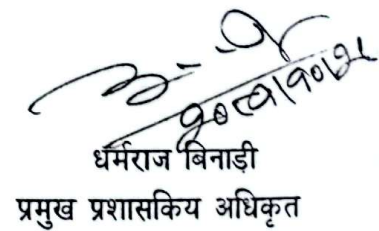 धर्मराज बिनाड़ी
प्रमुख प्रशासकिय अधिकृत